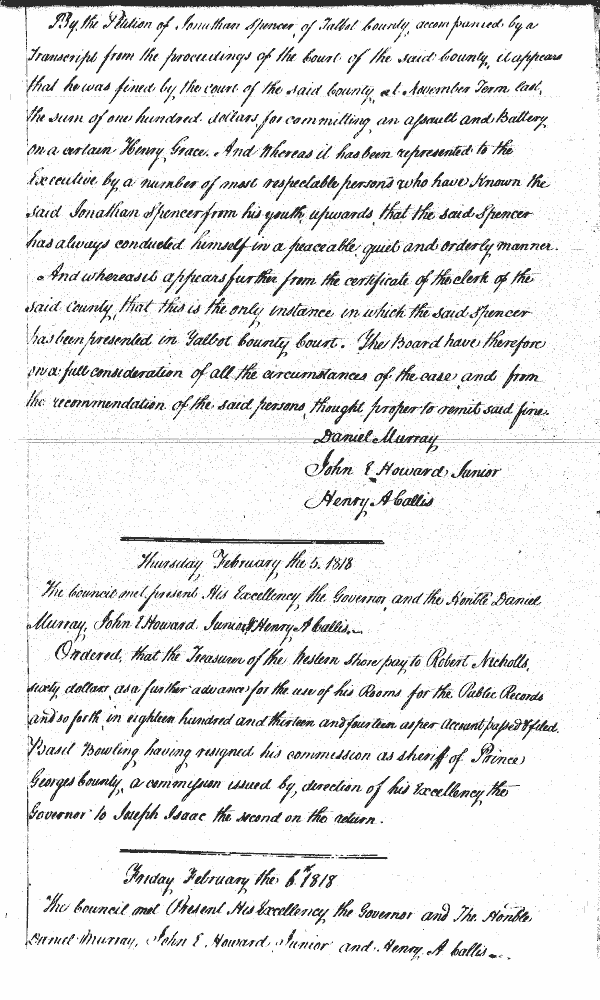 By the Petition of Jonathan Spencer, of Talbot County, accompanied by a
Transcript from the proceedings of the Court of the said County, it appears
that he was fined by the court of the said County, at November Term last,
the sum of one hundred dollars, for committing an assault and Battery
on a certain Henry Grace. And Whereas it has been represented to the
Executive by a number of most respectable persons who have Known the
said Jonathan Spencer from his youth, upwards, that the said Spencer
has always conducted himself in a peaceable, quiet and orderly manner.
And whereas it appears further from the certificate of the clerk of the
said County, that this is the only instance in which the said Spencer
has been presented in Talbot County Court. The Board have therefore
on a full consideration of all the circumstances of the case, and from
the recommendation of the said persons, thought proper to remit said fine.
Daniel Murray
John E Howard Junior
Henry A Callis
Thursday February the 5. 1818
The Council met, present His Excellency the Governor, and the Honble Daniel
Murray, John E Howard Junior & Henry A Callis.
Ordered, that the Treasurer of the Western shore pay to Robert Nicholls,
sixty dollars, as a further advance for the use of his Rooms for the Public Records
and so forth, in eighteen hundred and thirteen and fourteen as per account passed & filed.
Basil Bowling having resigned his commission as sheriff of Prince
Georges County, a commission issued by direction of his Excellency the
Governor to Joseph Isaac the second on the return.
Friday February the 6th 1818
The Council met (Present His Excellency the Governor and The Honble
Daniel Murray, John E Howard Junior and Henry A Callis